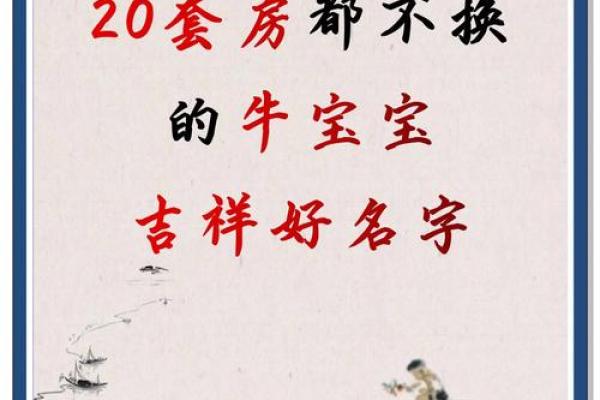 20套房都不换
的牛宝宝
吉祥好名字